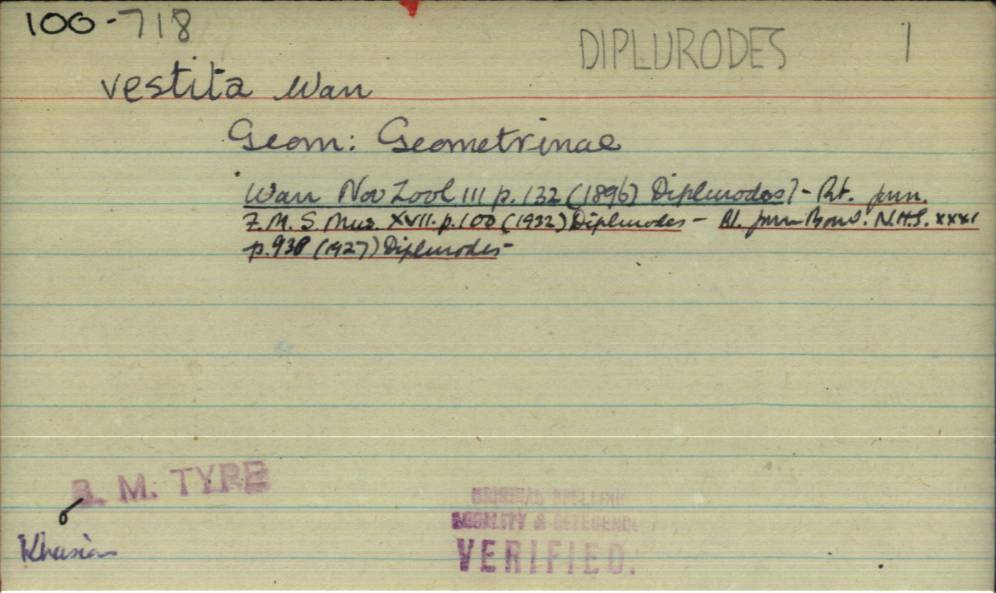 100-718
DIPLURODES 1
vestita Warr
Geom: Geometrinae
Warr Nov Zool III p. 132 (1896) Diplurodes] -
F.M.S. Mus. XVII. p. 100 (1932) Diplurodes - N.H.S. xxxi
p. 938 (1927) Diplurodes -
B. M. TYPE
ORIGINAL SPELLING
LOCALITY & REFERENCE
VERIFIED.
Khasias